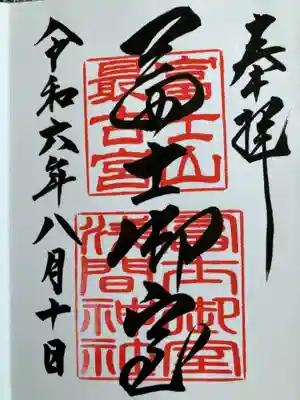 奉拝
冨士御室
富士山
最古宮
冨士御室
浅間神社
令和六年八月十日